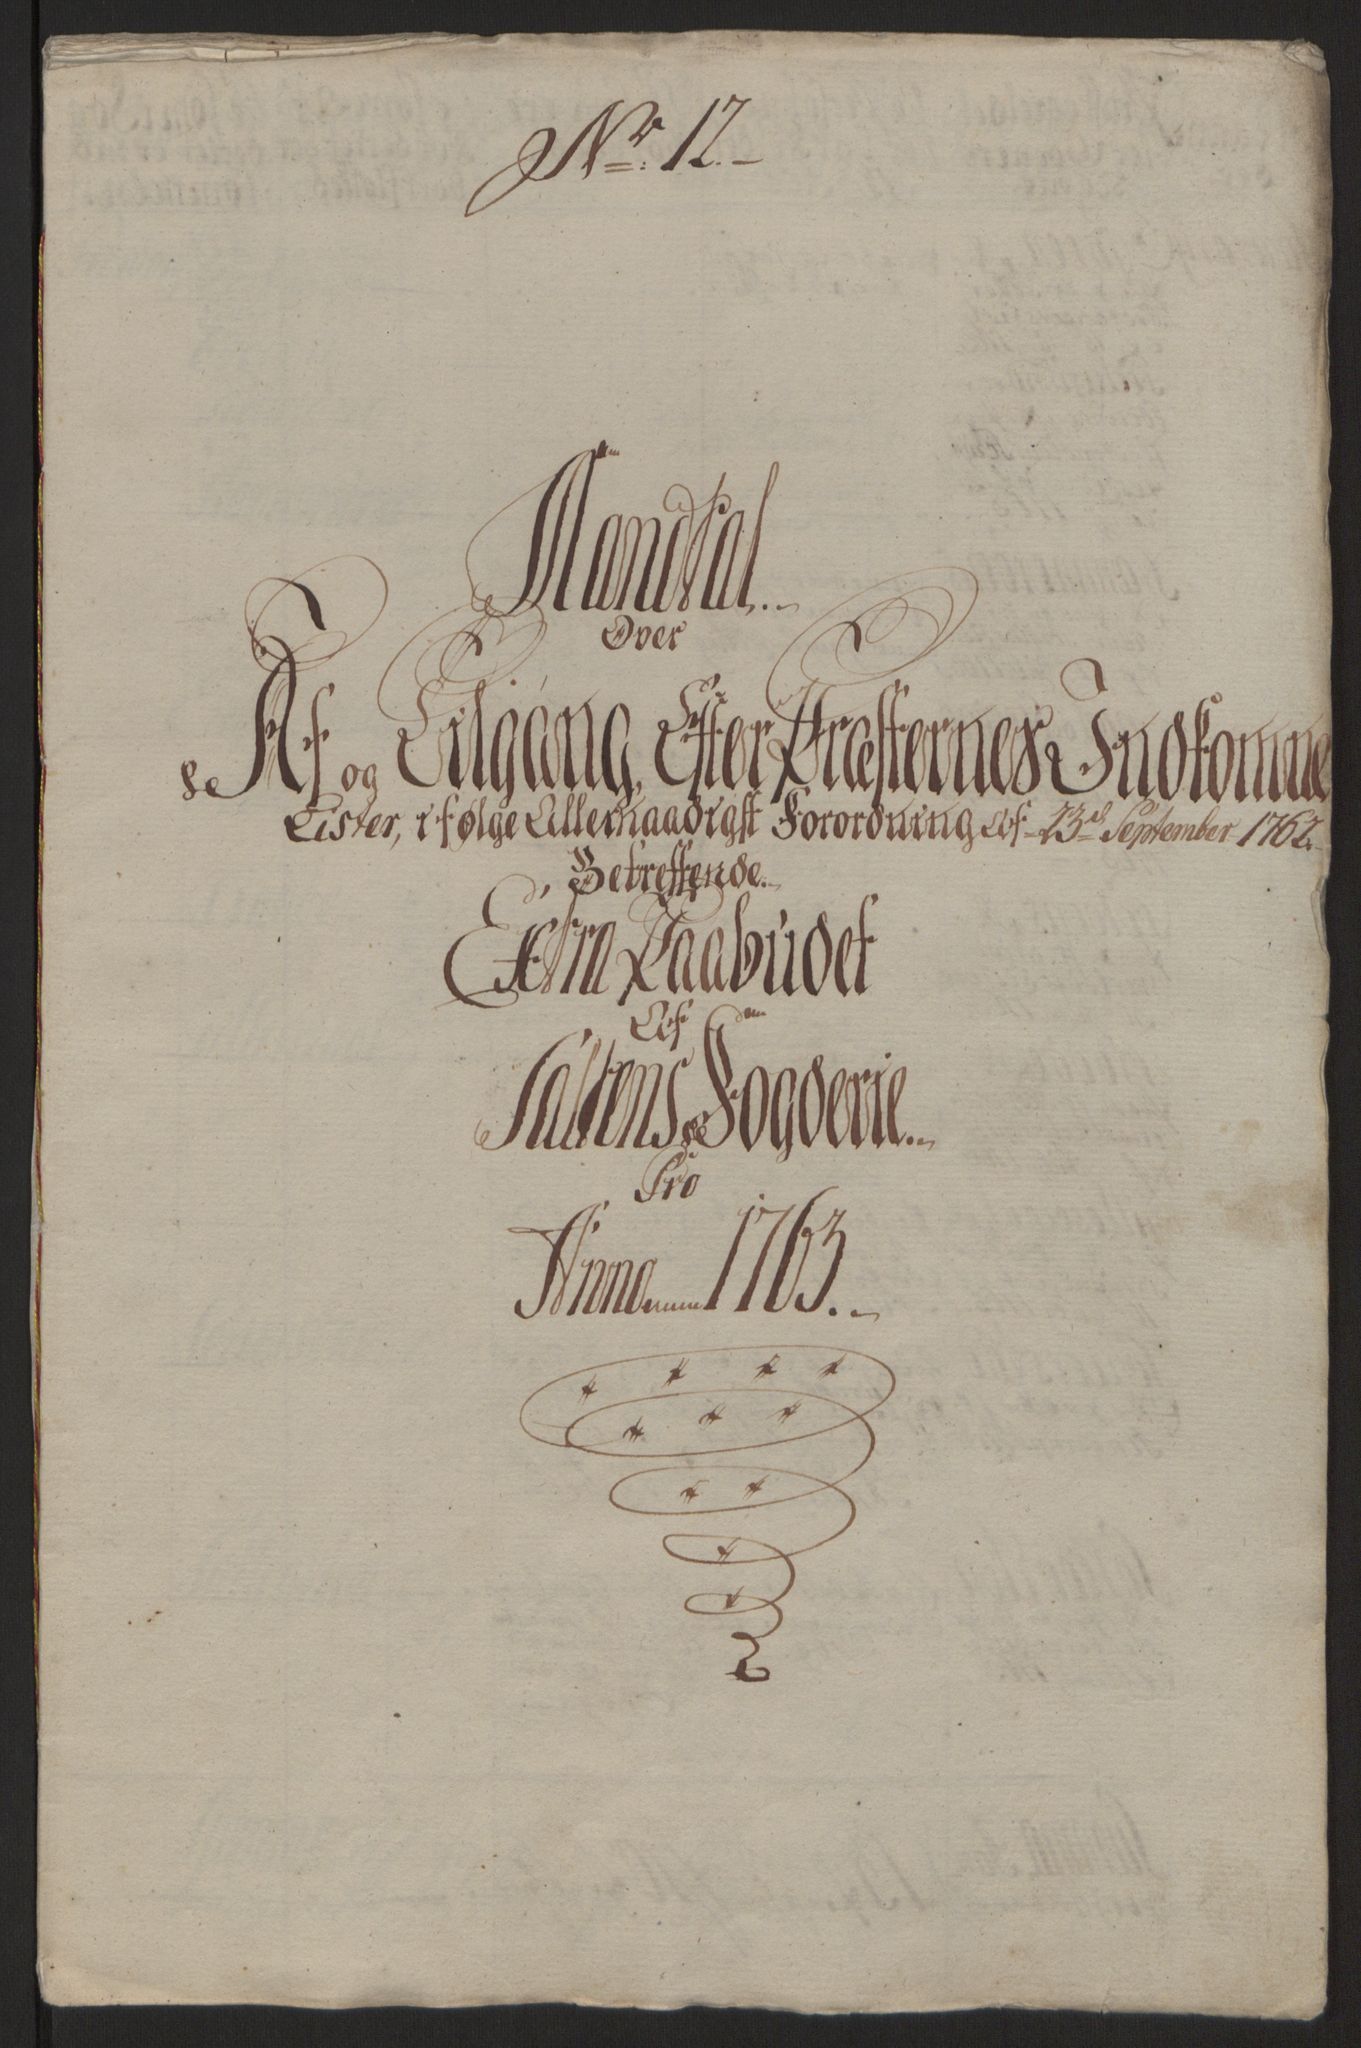 No: 12.
Mandtal
Over
Af og Tilgang, Efter Præsternes Indkomne
Lister, ifølge Allernaadigst Forordning Af 23de September 1762.
Betreffende
Extra Paabudet
Af
Saltens Fogderie
Pro
Anno 1763.